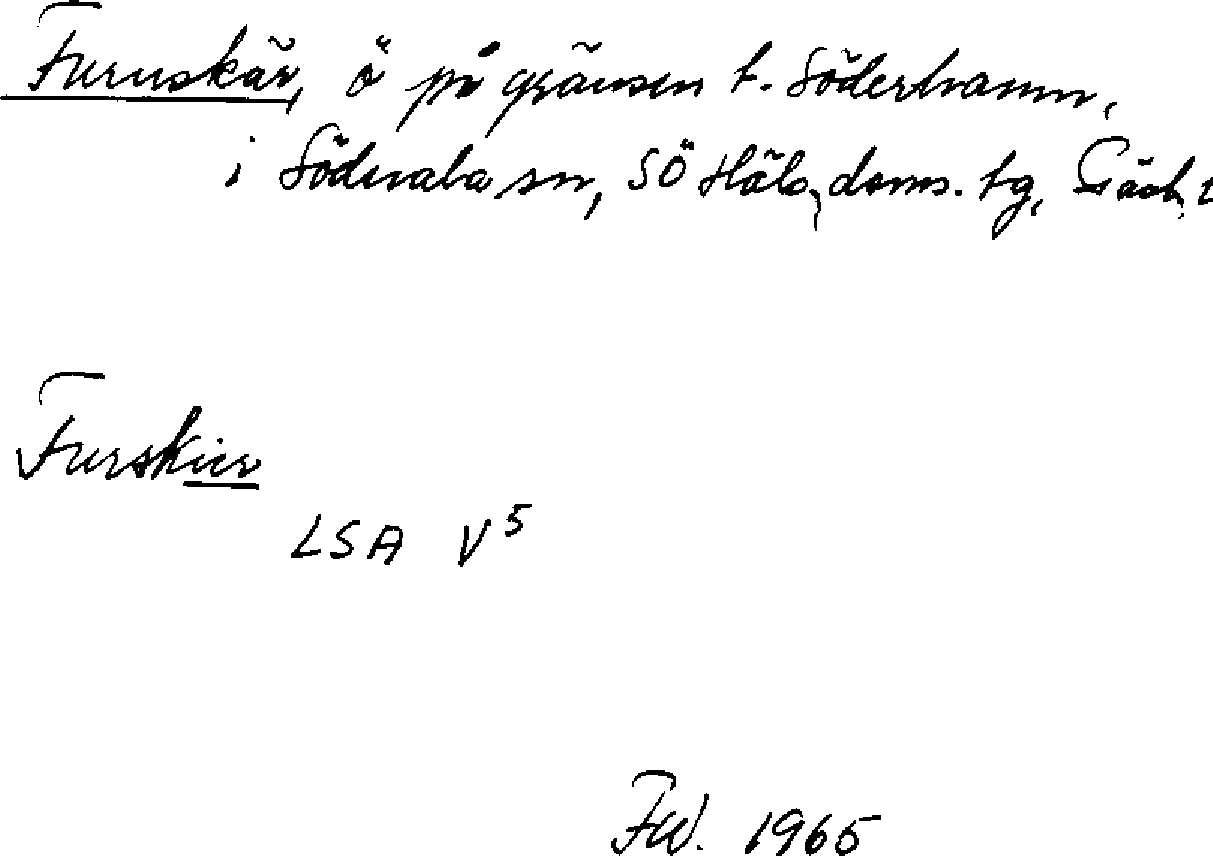 Furuskär, ö på gränsen t. Söderhamn,
i Söderala sn, SÖ Häls. doms. tg,
Furskier
LSA V⁵
1965